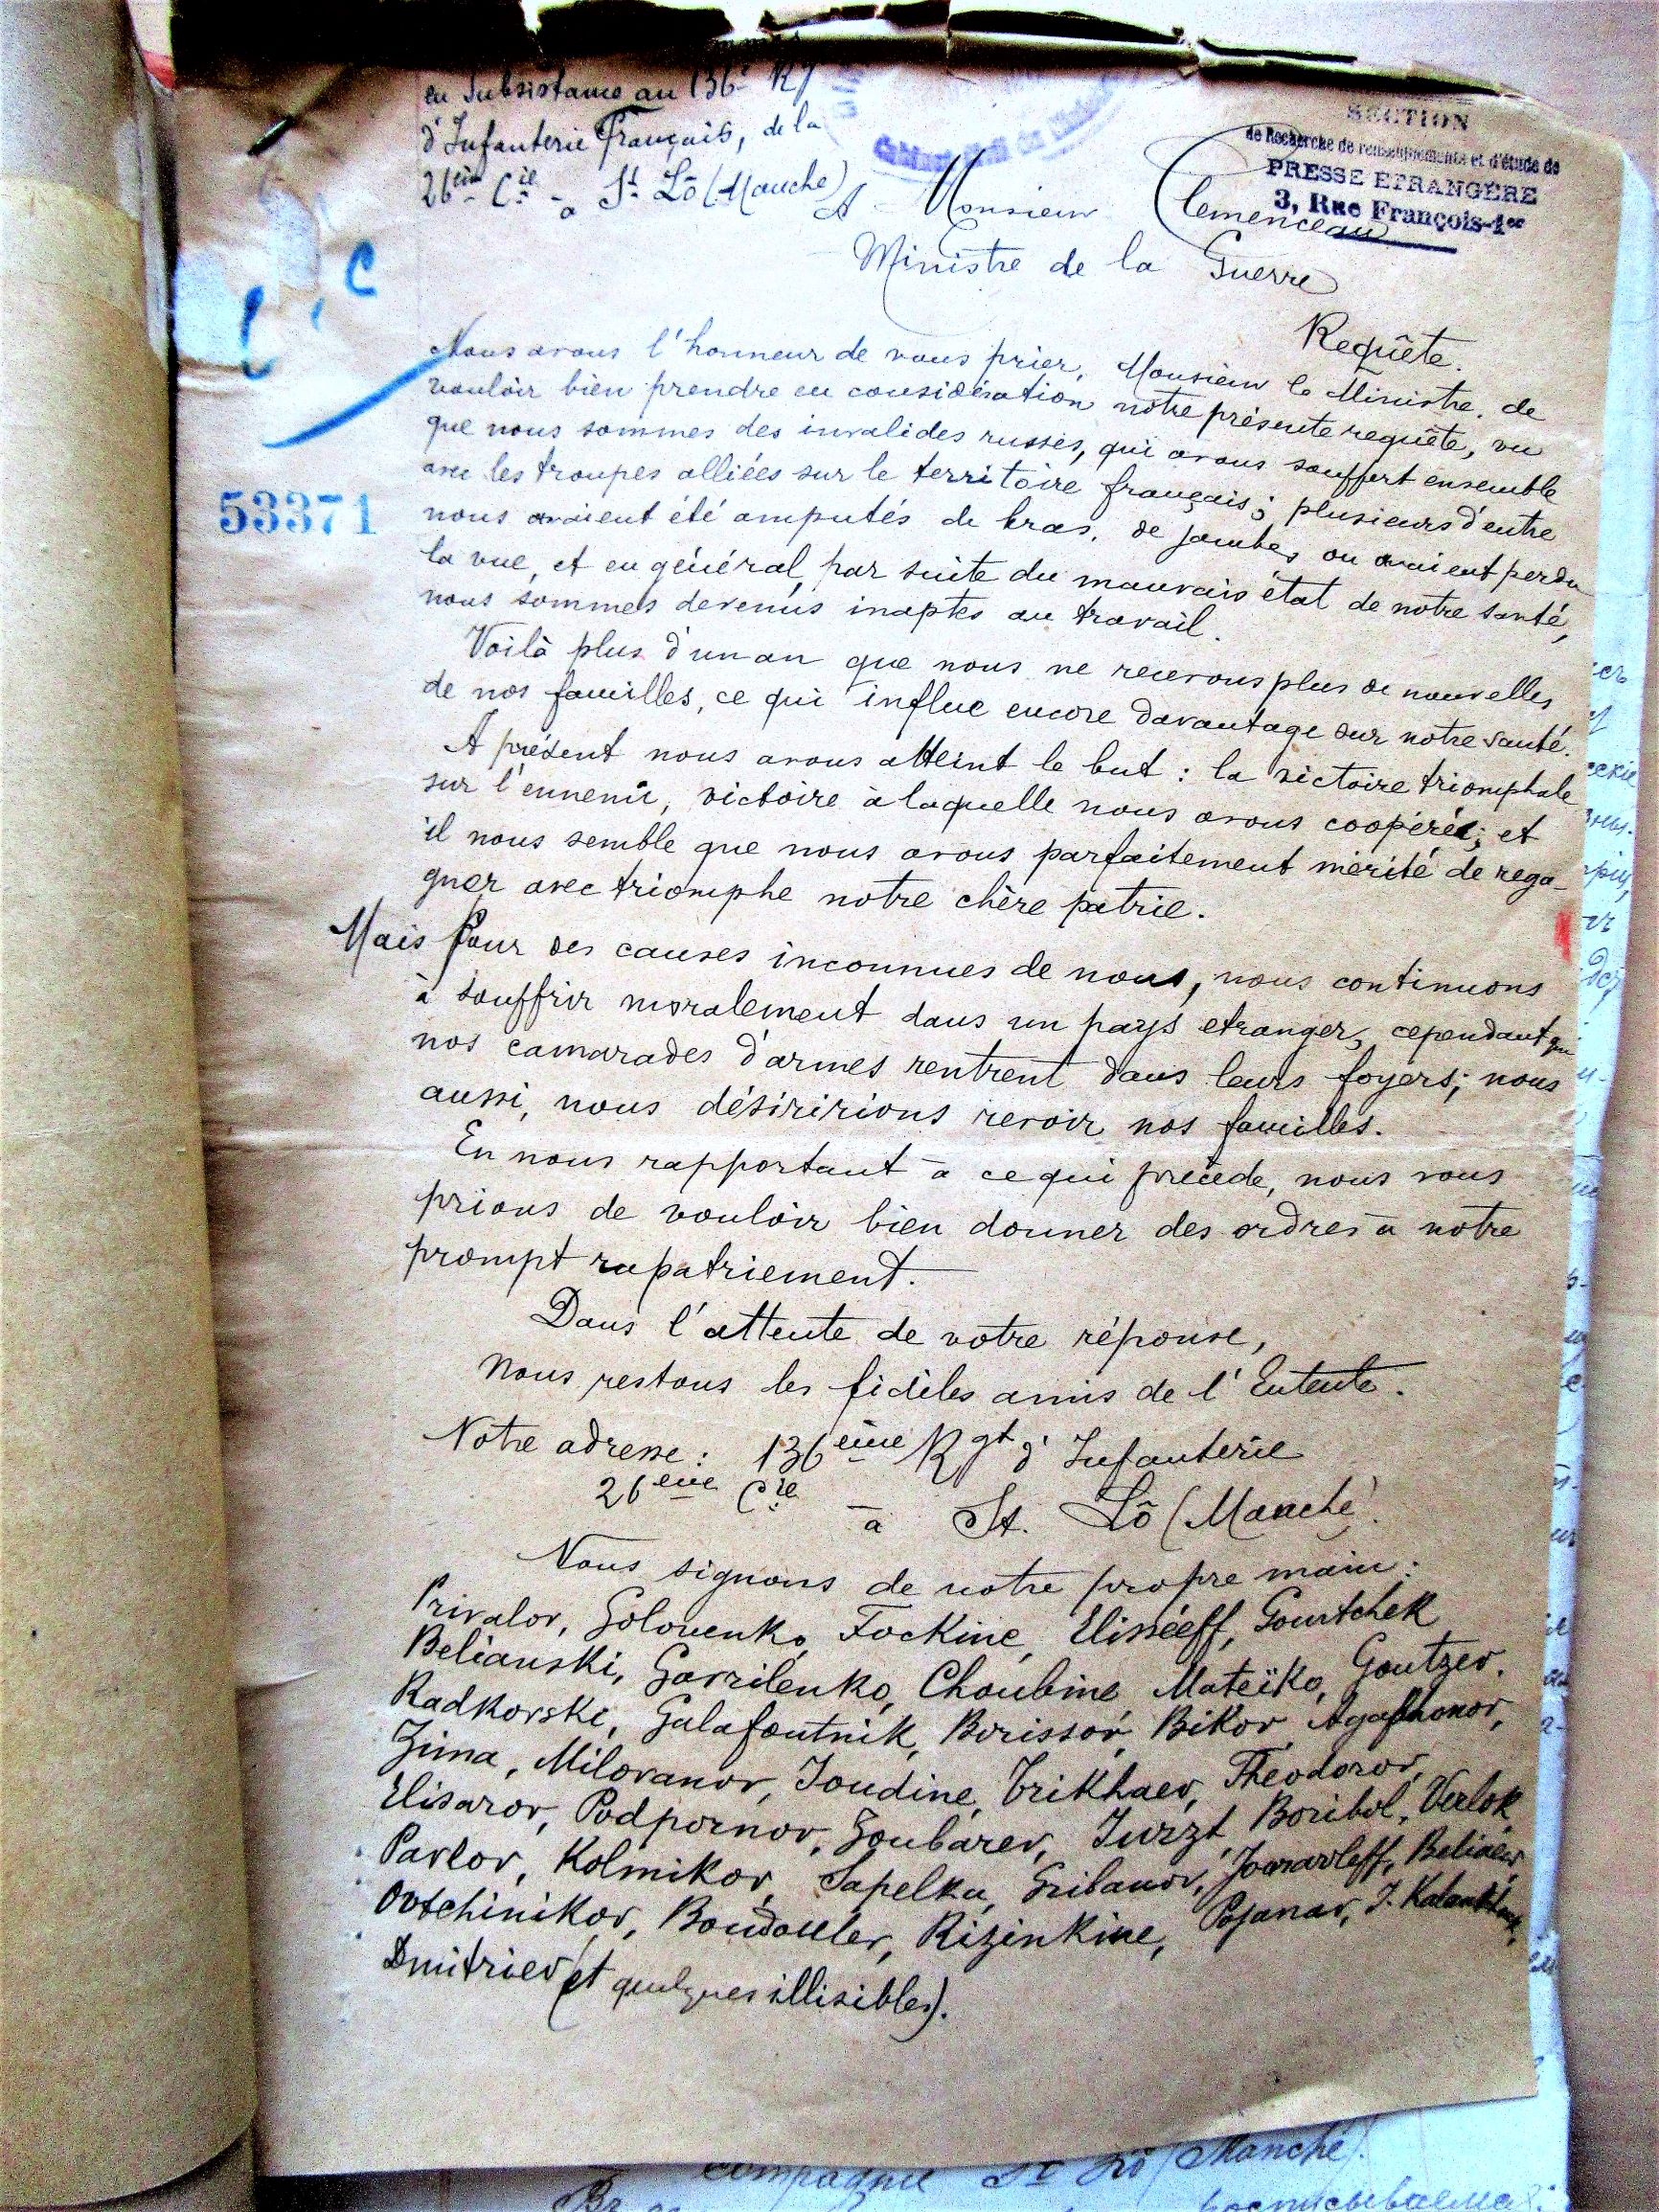 en subsistance au 136e Rg
d'Infanterie Français, de la
26ème Cie à St Lô (Manche)
SECTION
de Recherche de renseignements et d'étude de
PRESSE ETRANGÈRE
3, Rue François-1er
A Monsieur Clemenceau
Ministre de la Guerre
Requête.
53371
Nous avons l'honneur de vous prier, Monsieur le Ministre, de
vouloir bien prendre en considération notre présente requête, vu
que nous sommes des invalides russes, qui avons souffert ensemble
avec les troupes alliées sur le territoire français; plusieurs d'entre
nous avaient été amputés de bras, de jambes ou avaient perdu
la vue, et en général, par suite du mauvais état de notre santé,
nous sommes devenus inaptes au travail.
Voilà plus d'un an que nous ne recevons plus de nouvelles
de nos familles, ce qui influe encore davantage sur notre santé.
A présent nous avons atteint le but : la victoire triomphale
sur l'ennemi, victoire à laquelle nous avons coopéré; et
il nous semble que nous avons parfaitement mérité de rega-
gner avec triomphe notre chère patrie.
Mais Pour des causes inconnues de nous, nous continuons
à souffrir moralement dans un pays etranger, cependant que
nos camarades d'armes rentrent dans leurs foyers; nous
aussi, nous désiririons revoir nos familles.
En nous rapportant à ce qui précède, nous vous
prions de vouloir bien donner des ordres à notre
prompt rapatriement.
Dans l'attente de votre réponse,
nous restons les fidèles amis de l'Entente.
Notre adresse : 136ème Rgt d'Infanterie
26ème Cie à St. Lô (Manche).
Nous signons de notre propre main :
Privalov, Golovenko, Fockine, Elisséeff, Gourtchek
Belianski, Gavrilenko, Choubine, Mateïko, Goutzev.
Radkovski, Galafoutnik, Borissov, Bikov, Agaphonov,
Zima, Milovanov, Joudine, Trikhaev, Théodorov,
Elisarov, Podpornov, Goubarev, Jurzt, Boribol, Verlok
Pavlov, Kolmikov, Sapelka, Gribanov, Jouravleff, Beliaew,
Ovtchinikov, Boudouler, Rizinkine, Pojanav, J.
Dmitriev (et quelques illisibles).
compagnie St Lô (Manche).